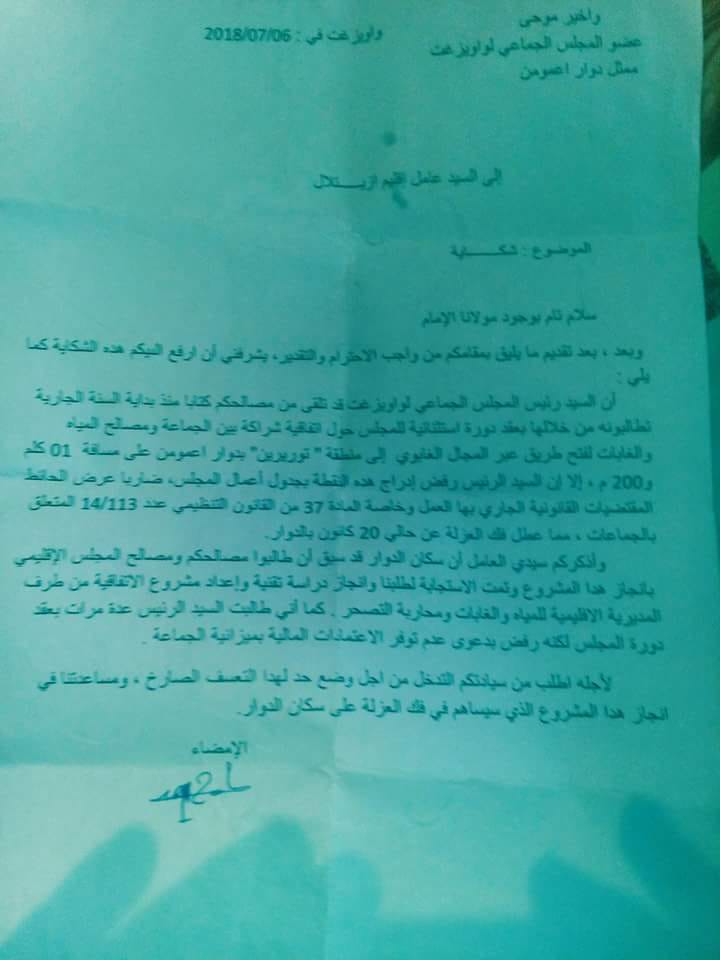 واخير موحى
عضو المجلس الجماعي لواويزغت
ممثل دوار اعمومن
واويزغت في : 2018/07/06
إلى السيد عامل إقليم ازيـــلال
الموضوع : شكـــــاية
سلام تام بوجود مولانا الإمام
وبعد ، بعد تقديم ما يليق بمقامكم من واجب الاحترام والتقدير، يشرفني أن ارفع اليكم هده الشكاية كما
يلي :
أن السيد رئيس المجلس الجماعي لواويزغت قد تلقى من مصالحكم كتابا منذ بداية السنة الجارية
تطالبونه من خلالها بعقد دورة استثنائية للمجلس حول اتفاقية شراكة بين الجماعة ومصالح المياه
والغابات لفتح طريق عبر المجال الغابوي إلى منطقة " توريرين" بدوار اعمومن على مسافة 01 كلم
و200 م ، إلا إن السيد الرئيس رفض إدراج هده النقطة بجدول أعمال المجلس، ضاربا عرض الحائط
المقتضيات القانونية الجاري بها العمل وخاصة المادة 37 من القانون التنظيمي عدد 14/113 المتعلق
بالجماعات ، مما عطل فك العزلة عن حالي 20 كانون بالدوار.
وأذكركم سيدي العامل أن سكان الدوار قد سبق أن طالبوا مصالحكم ومصالح المجلس الإقليمي
بانجاز هدا المشروع وتمت الاستجابة لطلبنا وانجاز دراسة تقنية وإعداد مشروع الاتفاقية من طرف
المديرية الاقليمية للمياه والغابات ومحاربة التصحر . كما أني طالبت السيد الرئيس عدة مرات بعقد
دورة المجلس لكنه رفض بدعوى عدم توفر الاعتمادات المالية بميزانية الجماعة .
لأجله اطلب من سيادتكم التدخل من اجل وضع حد لهدا التعسف الصارخ ، ومساعدتنا في
انجاز هدا المشروع الذي سيساهم في فك العزلة على سكان الدوار.
الإمضاء